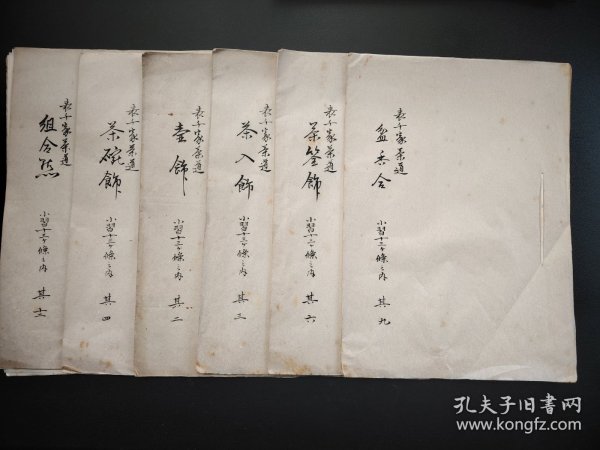 表千家茶道
盆香合
小習十三ヶ條之内 其九
表千家茶道
茶筌飾
小習十三ヶ條之内 其六
表千家茶道
茶入飾
小習十三ヶ條之内 其三
表千家茶道
壺飾
小習十三ヶ條之内 其二
表千家茶道
茶碗飾
小習十三ヶ條之内 其四
表千家茶道
組合点
小習十三ヶ條之内 其十二
孔夫子旧书网
www.kongfz.com